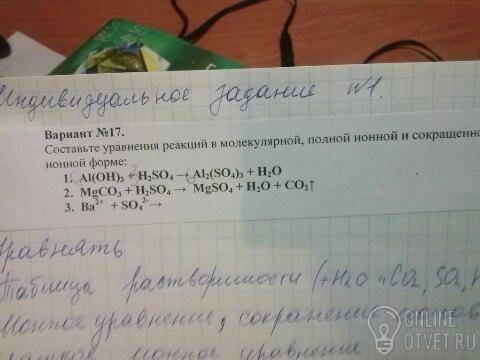 Индивидуальное задание №1.
Вариант №17.
Составьте уравнения реакций в молекулярной, полной ионной и сокращенно
ионной форме:
1. Al(OH)₃ + H₂SO₄ → Al₂(SO₄)₃ + H₂O
2. MgCO₃ + H₂SO₄ → MgSO₄ + H₂O + CO₂↑
3. Ba²⁺ + SO₄²⁻→
Уравнять
Таблица растворимости (+H₂O "CO₂, SO₂, H
Ионное уравнение, сокращение
ионное уравнение
ONLINE
OTVET.RU